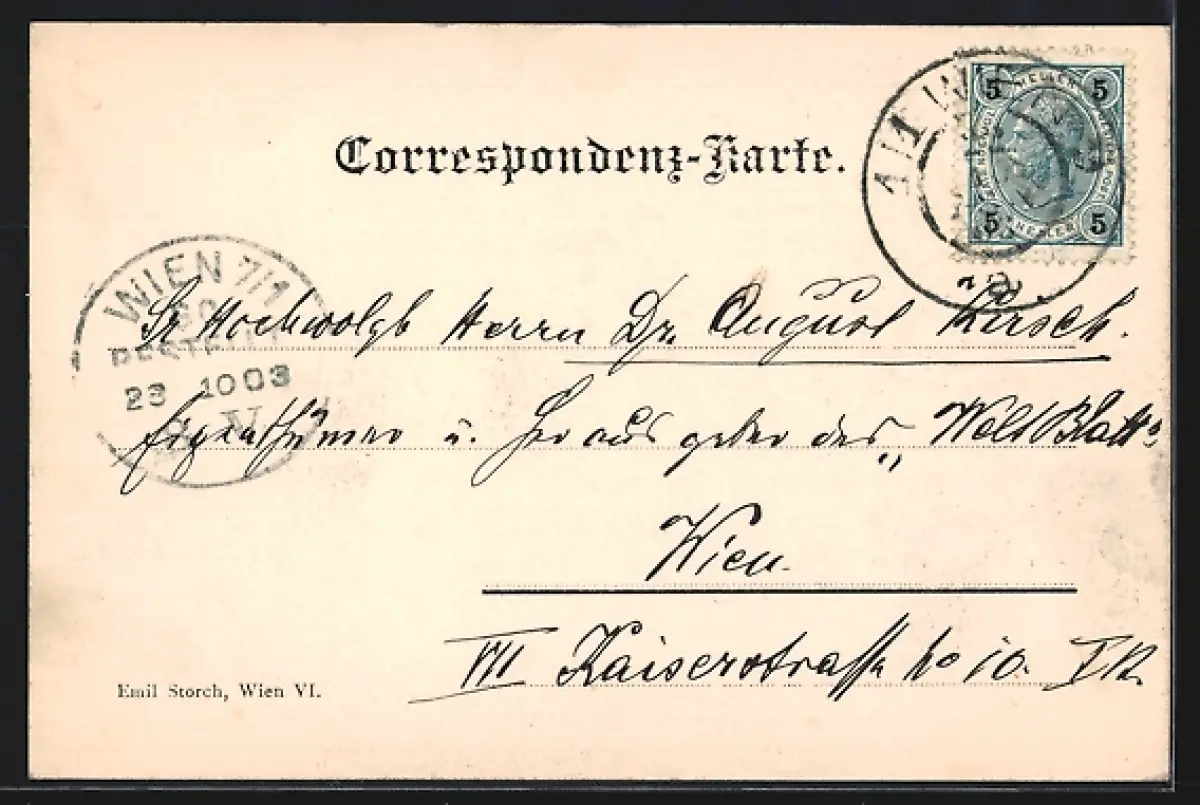 Correspondenz-Karte.
5 HELLER 5
5 HELLER 5
1/1 WIEN
WIEN 7/1
BESTELLT
23 10 03
Sr Hochwolgb Herrn Dr. August Kirsch.
Eigenthümer u. Herausgeber des „Welt Blatt"
Wien.
VII Kaiserstraße No 10.
Emil Storch, Wien VI.